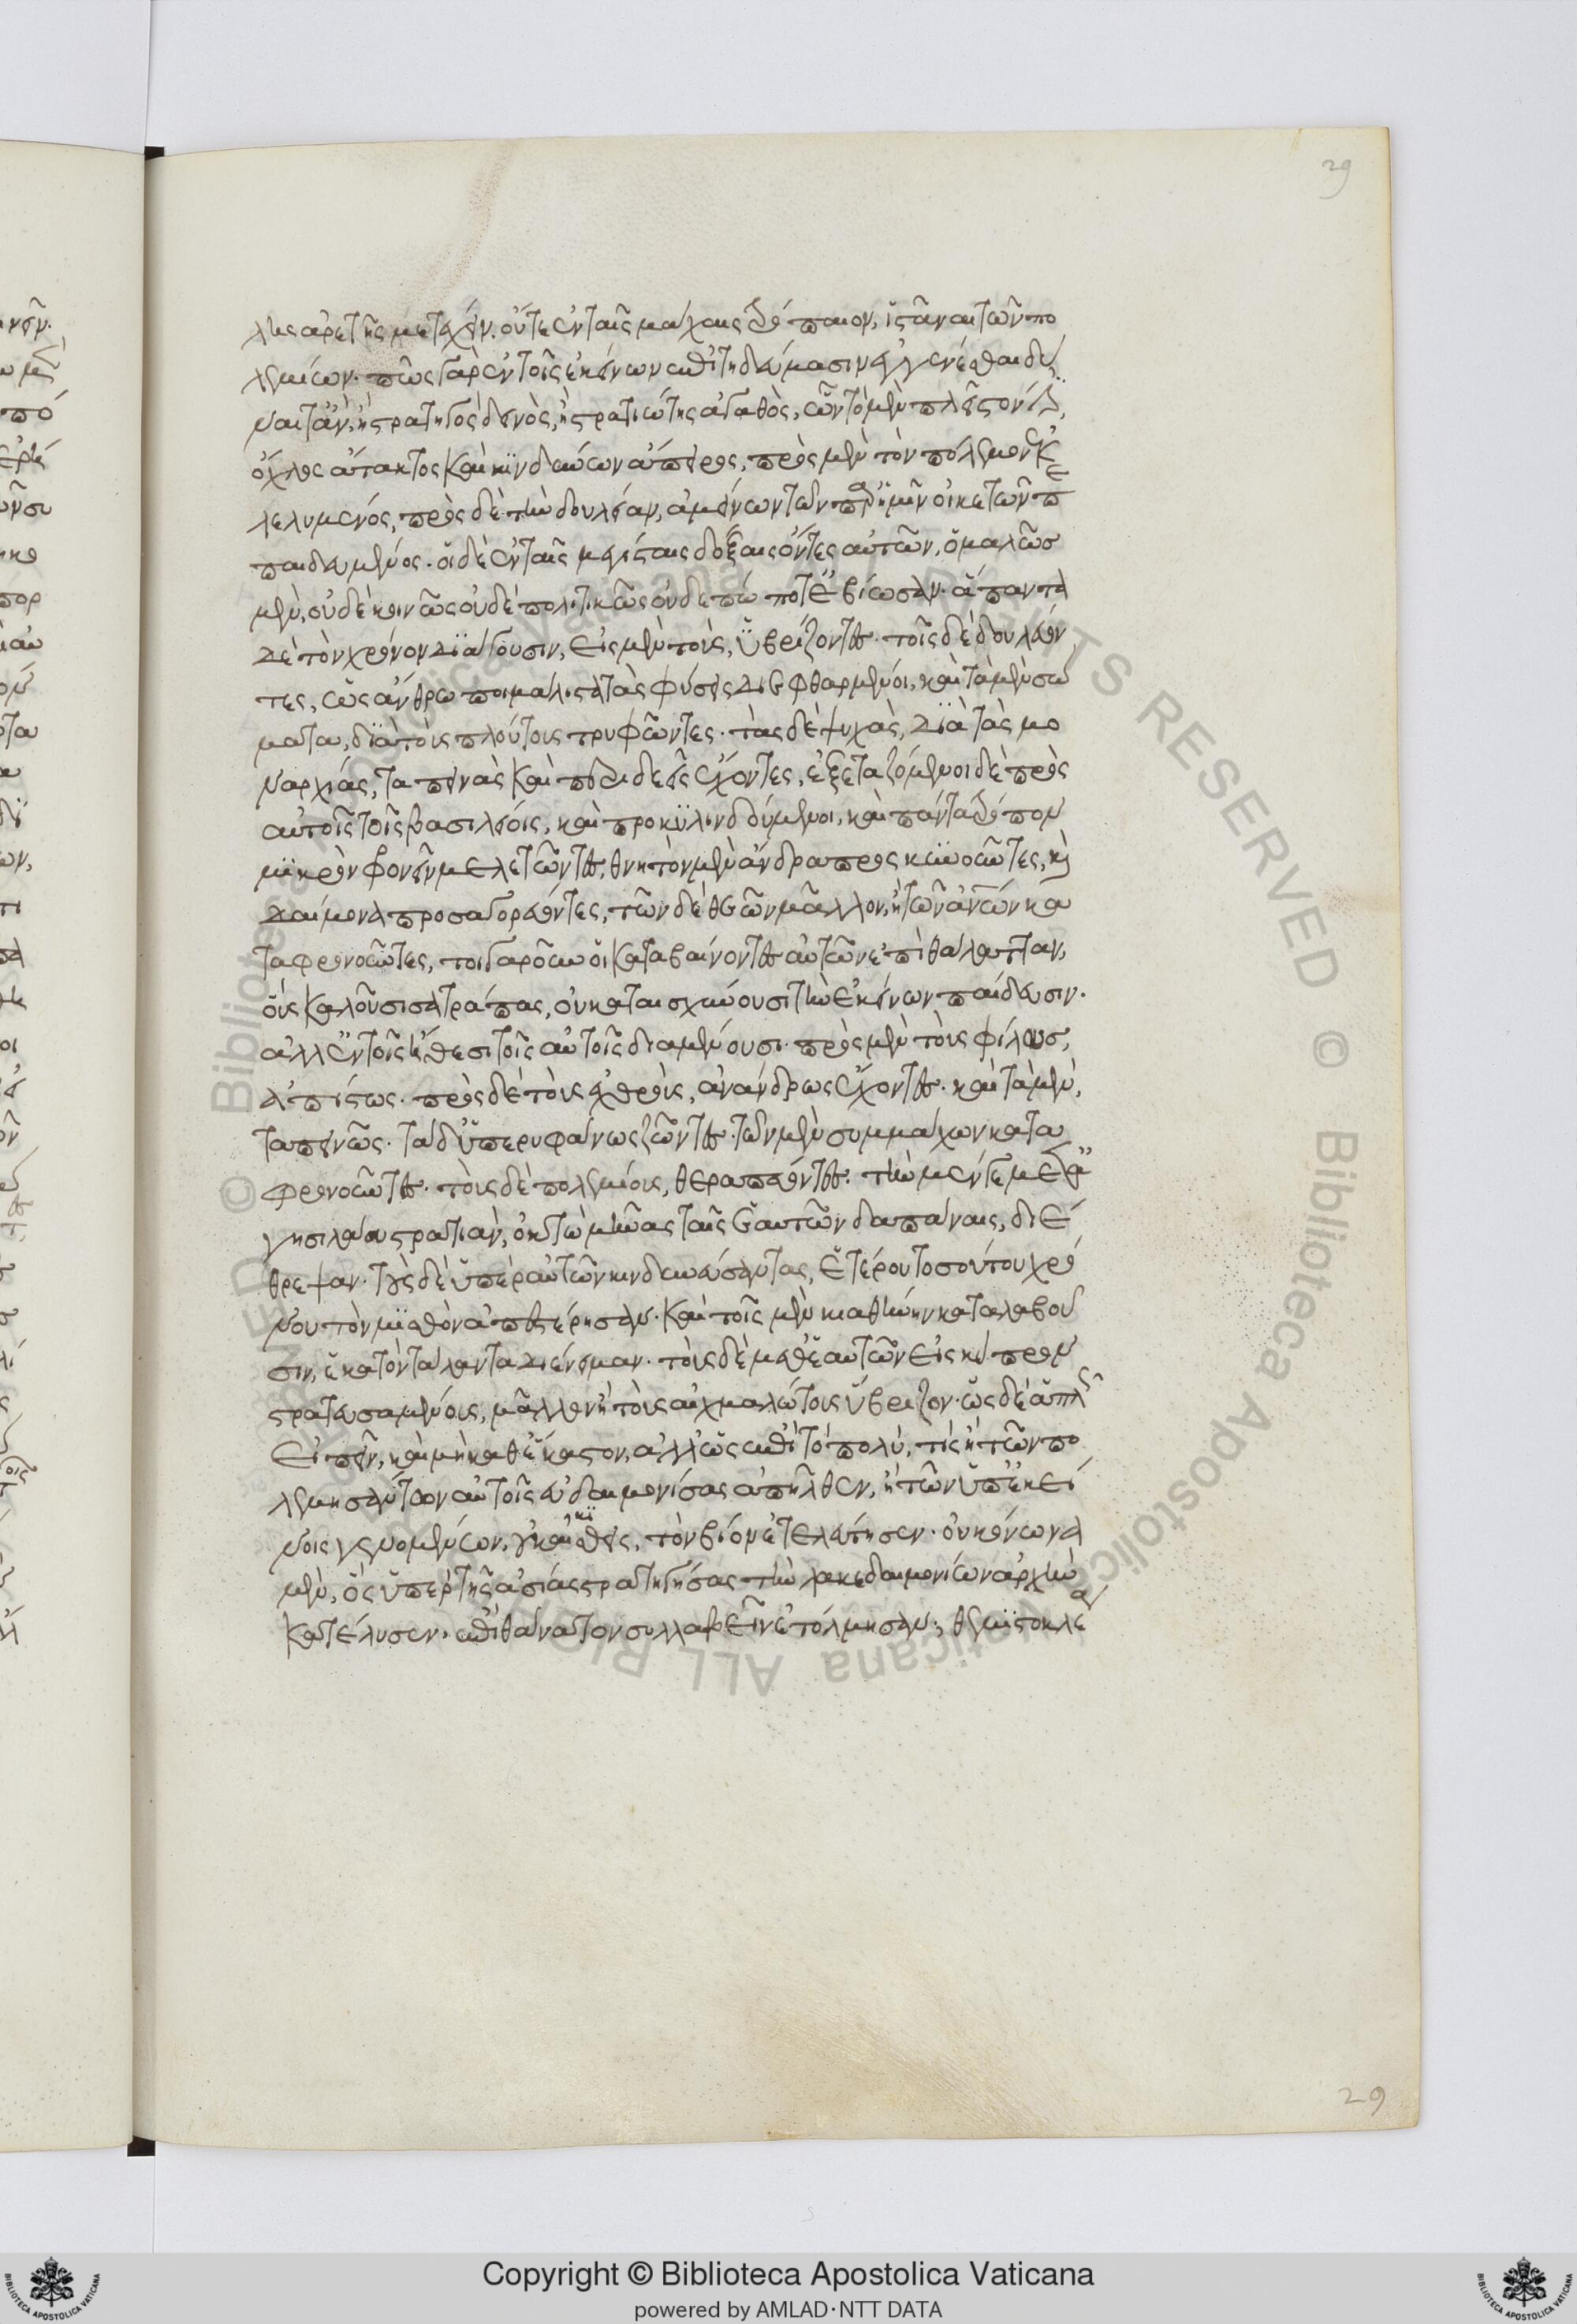 29
λης ἀρετῆς μετέχειν. οὔτε ἐν ταῖς μάχαις τρόπαιον, ἱστάναι τῶν πο
λεμίων. πῶς γὰρ ἐν τοῖς ἐκείνων ἐπιτηδεύμασιν ἐγγενέσθαι δύ
ναιτ' ἄν, ἢ στρατηγὸς δεινὸς, ἢ στρατιώτης ἀγαθὸς, ὧν τὸ μὲν πλεῖστον ἐστιν,
ὄχλος ἄτακτος καὶ κινδύνων ἄπειρος, πρὸς μὲν τὸν πόλεμον ἐκ
λελυμένος, πρὸς δὲ τὴν δουλείαν, ἀμείνων τῶν παρ' ἡμῖν οἰκετῶν πε
παιδευμένος. οἱ δὲ ἐν ταῖς μεγίσταις δόξαις ὄντες αὐτῶν, ὁμαλῶσ
μὲν, οὐδὲ κοινῶς οὐδὲ πολιτικῶς οὐδεπώποτε ἐβίωσαν. ἅπαντα
δὲ τὸν χρόνον διάγουσιν, εἰς μὲν τοὺς, ὑβρίζοντες. τοῖς δὲ δουλεύον
τες, ὡς ἄνθρωποι μάλιστα τὰς φύσεις διεφθαρμένοι, καὶ τὰ μὲν σώ
ματα, διὰ τοὺς πλούτους τρυφῶντες. τὰς δὲ ψυχὰς, διὰ τὰς μο
ναρχίας, ταπεινὰς καὶ περιδεεῖς ἔχοντες, ἐξεταζόμενοι δὲ πρὸς
αὐτοῖς τοῖς βασιλείοις, καὶ προκυλινδούμενοι, καὶ πάντα τρόπον
μικρὸν φρονεῖν μελετῶντες, θνητὸν μὲν ἄνδρα προσκυνοῦντες, καὶ
δαίμονα προσαγορεύοντες, τῶν δὲ θεῶν μᾶλλον, ἢ τῶν ἀνθρώπων κα
ταφρονοῦντες, τοιγαροῦν οἱ καταβαίνοντες αὐτῶν ἐπὶ θάλατταν,
οὓς καλοῦσι σατράπας, οὐ καταισχύνουσι τὴν ἐκείνων παίδευσιν.
ἀλλ' ἐν τοῖς ἤθεσι τοῖς αὐτοῖς διαμένουσι. πρὸς μὲν τοὺς φίλους,
ἀπίστως. πρὸς δὲ τοὺς ἐχθροὺς, ἀνάνδρως ἔχοντες. καὶ τὰ μὲν,
ταπεινῶς. τὰ δ' ὑπερηφάνως ζῶντες. τῶν μὲν συμμάχων κατα
φρονοῦντες. τοὺς δὲ πολεμίους, θεραπεύοντες. τὴν μέν γε μετὰ ἀ
γησιλάου στρατιὰν, ὀκτὼ μῆνας ταῖς ἑαυτῶν δαπάναις, διέ
θρεψαν. τοὺς δὲ ὑπὲρ αὐτῶν κινδυνεύσαντας, ἑτέρου τοσούτου χρό
νου τὸν μισθὸν ἀπεστέρησαν. καὶ τοῖς μὲν κισθήνην καταλαβοῦ
σιν, ἑκατὸν τάλαντα διένειμαν. τοὺς δὲ μεθ' ἑαυτῶν εἰς κύπρον
στρατευσαμένους, μᾶλλον ἢ τοὺς αἰχμαλώτους ὕβριζον. ὡς δὲ ἁπλῶς
εἰπεῖν, καὶ μὴ καθ' ἕκαστον, ἀλλ' ὡς ἐπὶ τὸ πολύ, τίς ἢ τῶν πο
λεμησάντων αὐτοῖς εὐδαιμονήσας ἀπῆλθεν, ἢ τῶν ὑπ' ἐκεί
νοις γενομένων, οὐκ αἰκισθεὶς, τὸν βίον ἐτελεύτησεν. οὐ κόνωνα
μὲν, ὃς ὑπὲρ τῆς ἀσίας στρατηγήσας τὴν λακεδαιμονίων ἀρχὴν
κατέλυσεν. ἐπὶ θανάτον συλλαβεῖν ἐτόλμησαν; θεμιστοκλέα
29
Copyright © Biblioteca Apostolica Vaticana
powered by AMLAD·NTT DATA